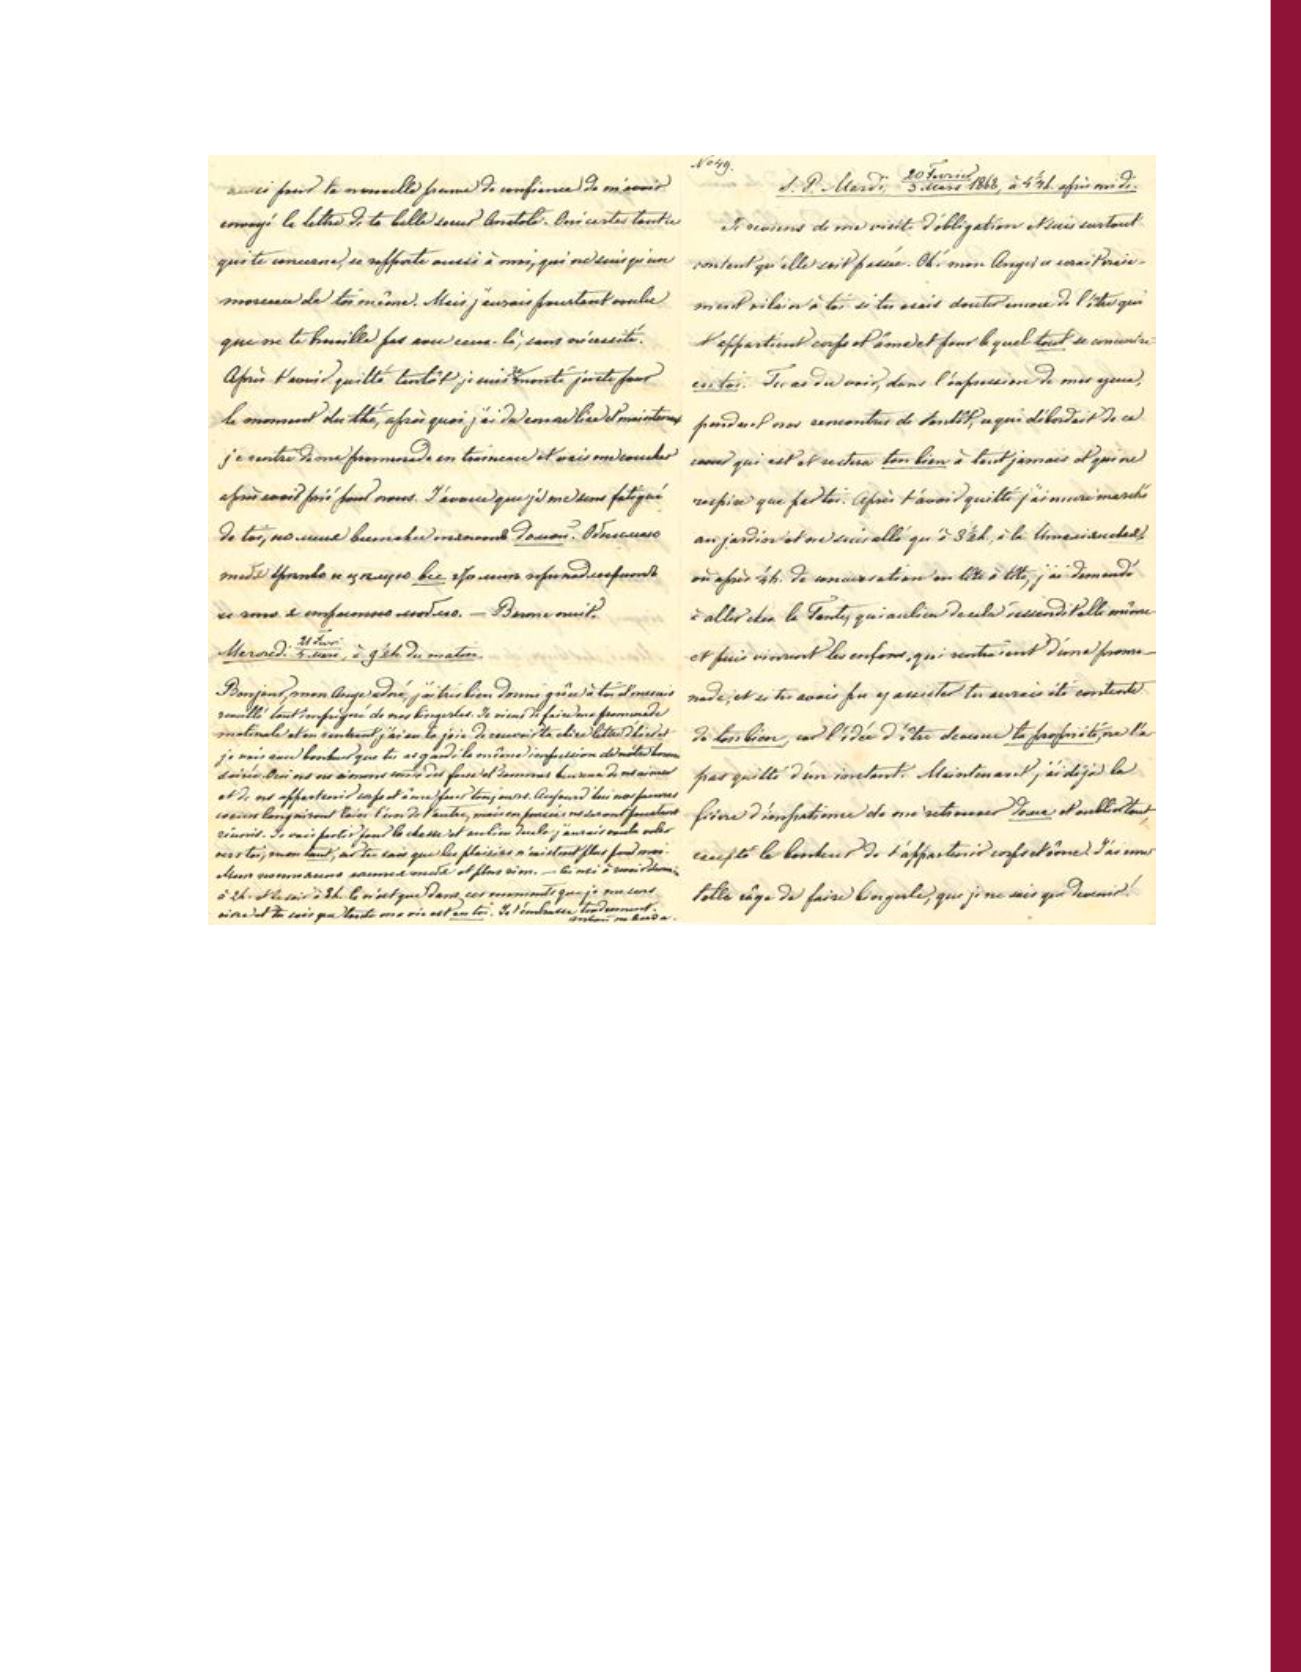 aussi pour ta nouvelle preuve de confiance de m'avoir
envoyé la lettre de ta belle soeur Anatole. Oui certes tout ce
qui te concerne, se rapporte aussi à moi, qui ne suis qu'un
morceau de toi même. Mais j'aurais pourtant voulu
que ne te brouille pas avec ceux-là, sans nécessité.
Après t'avoir quitté tantôt je suis remonté juste pour
le moment du thé, après quoi j'ai du encore lire et maintenant
je rentre de ma promenade en traineau et vais me coucher
après avoir prié pour nous. J'avoue que je me sens fatigué
de toi,
все
Bonne nuit.
Mercredi 21 Fevr./4 Mars, à 9 ½h. du matin.
Bonjour, mon Ange adoré, j'ai très bien dormi grâce à toi et me suis
reveillé tout impregné de nos bingerles. Je viens de faire ma promenade
matinale et en rentrant j'ai eu la joie de recevoir ta chère lettre d'hier et
je vois avec bonheur que tu as gardé la même impression de notre bonne
soirée. Oui ns ns aimons comme des fous et sommes heureux de ns aimer
et de ns appartenir corps et âme pour toujours. Aujourd'hui nos pauvres
coeurs languiront loin l'un de l'autre, mais en pensée ns serons pourtant
réunis. Je vais partir pour la chasse et au lieu de cela j'aurais voulu voler
vers toi, mon tout, car tu sais que les plaisirs n'existent plus pour moi.
et plus rien. —
à 2h. et le soir à 8h. Ce n'est que dans ces moments que je me sens
vivre et tu sais que toute ma vie est en toi. Je t'embrasse tendement.
No 49.
S. P. Mardi, 20 Fevrier/3 Mars 1868, à 4 ½h. après midi.
Je reviens de ma visite d'obligation et suis surtout
content qu'elle soit passée. Oh! mon Ange, ce serait vrai-
ment vilain à toi si tu osais douter encore de l'être qui
t'appartient corps et âme et pour lequel tout se concentre
en toi. Tu as du voir, dans l'expression de mes yeux,
pendant nos rencontres de tantôt, ce qui débordait de ce
coeur qui est et restera ton bien à tout jamais et qui ne
respire que par toi. Après t'avoir quitté j'ai encore marché
au jardin et ne suis allé qu'à 3 ½h.
où après ½h. de conversation en tête à tête, j'ai demandé
à aller chez la Tante, qui au lieu de cela descendit elle même
et puis vinrent les enfans, qui rentraient d'une prome-
nade, et si tu avais pu y assister tu aurais été contente
de ton bien, car l'idée d'être devenu ta propriété, ne l'a
pas quitté d'un instant. Maintenant j'ai déjà la
fièvre d'impatience de me retrouver et oublier tout
excepté le bonheur de t'appartenir corps et âme! J'ai une
telle râge de faire bingerle, que je ne sais que devenir!